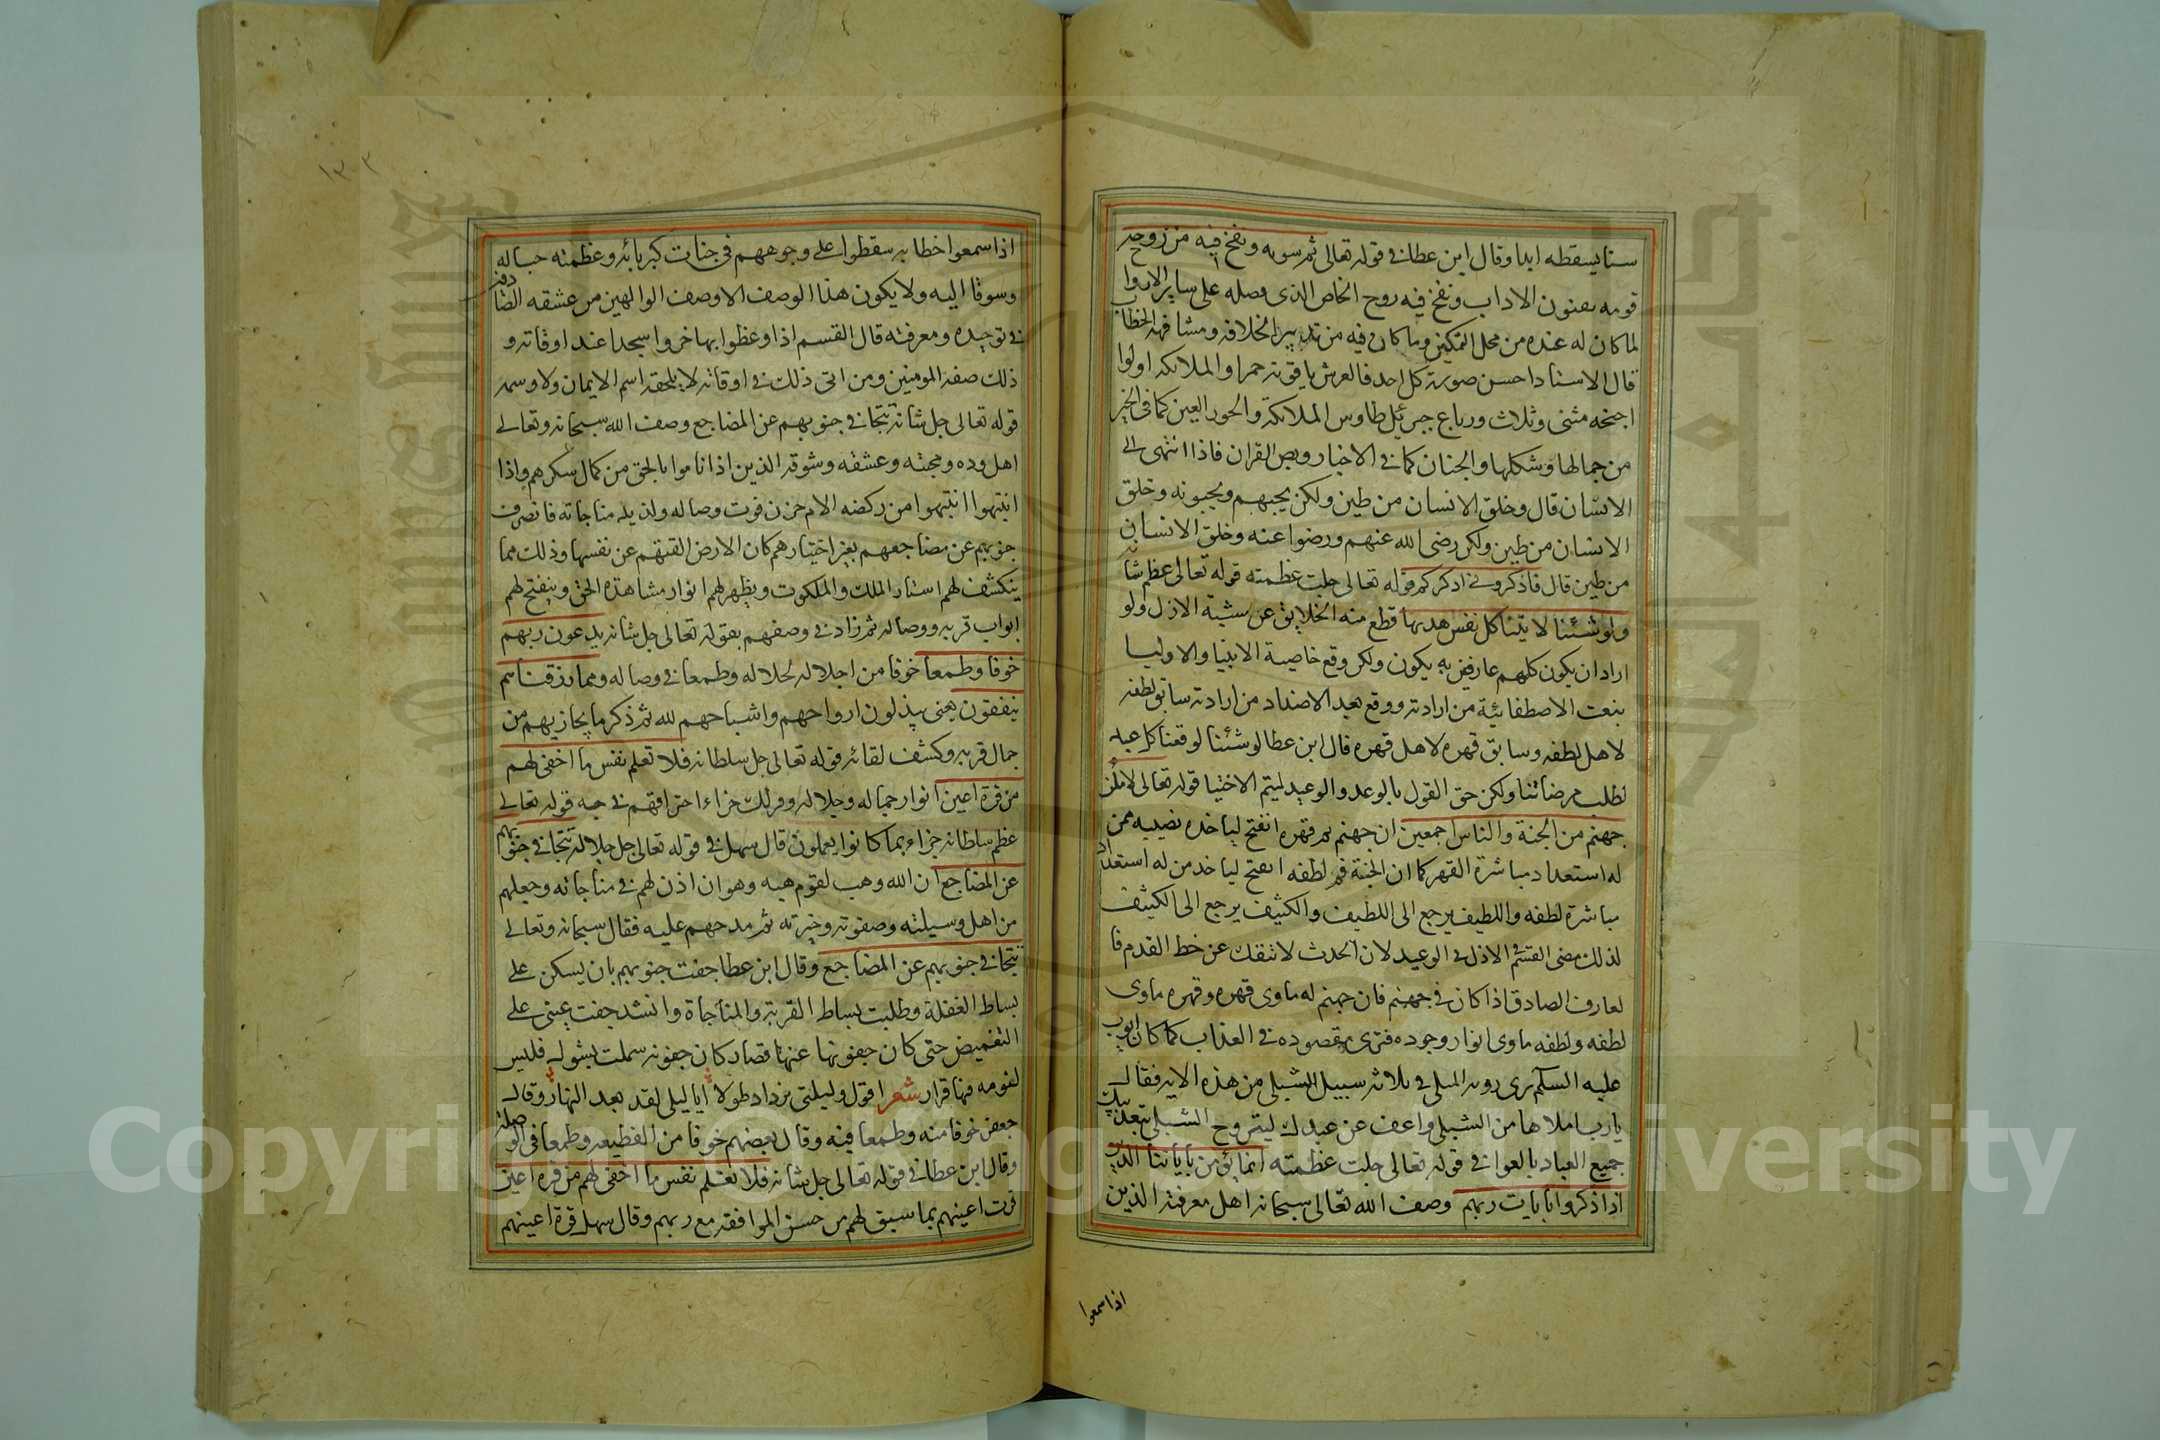 سنا يسقطه ابدا وقال ابن عطا في قوله تعالى ثم سويه ونفخ فيه من روحه
قومه بفنون الاداب ونفخ فيه روح الخاص الذى فضله على ساير الاروا
لما كان له عنده من محل التمكين وما كان فيه من تدبير الخلافة ومشافهة الخطاب
قال الاستاد احسن صورة كل احد فالعرش ياقوتة حمرا والملائكة اولوا
اجنحه مثنى وثلاث ورباع جبرئيل طاوس الملائكة والحور العين كما في الخبر
من جمالها وشكلها والجنان كما في الاخبار ونص القران فاذا انتهى الى
الانسان قال وخلق الانسان من طين ولكن يحبهم ويحبونه وخلق
الانسان من طين ولكن رضى الله عنهم ورضوا عنه وخلق الانسان
من طين قال فاذكرونى اذكركم قوله تعالى جلت عظمته قوله تعالى عظم شا
ولو شئنا لاتينا كل نفس هديها قطع منه الخلايق عن سشية الازل ولو
اراد ان يكون كلهم عارفين به يكون ولكن وقع خاصية الانبيا والاوليا
بنعت الاصطفائية من ارادته ووقع بعيد الاضداد من ارادته سابق لطفه
لاهل لطفه وسابق قهره لاهل قهره قال ابن عطا لو شئنا لوقعنا كل عبد
لطلب مرضاتنا ولكن حق القول بالوعد والوعيد ليتم الاختيا قوله تعالى لاملئن
جهنم من الجنة والناس اجمعين ان جهنم فم قهره انفتح لياخذه نصيبه ممن
له استعداد مباشرة القهر كما ان الجنة فم لطفه انفتح لياخذ من له استعداد
مباشرة لطفه واللطيف يرجع الى اللطيف والكثيف يرجع الى الكثيف
لذلك مضى القسم الازل في الوعيد لان الحدث لا تنفك عن خط القدم فا
لعارف الصادق اذا كان في جهنم فان جهنم له ماوى قهره وقهره ماوى
لطفه ولطفه ماوى انوار وجوده فترى مقصوده في العذاب كما كان ايوب
عليه السلم يرى روية المبلى في بلائه سبيل الشبلى من هذه الاية فقال
يارب املاها من الشبلى واعف عن عبدك ليتروح الشبلى بتعذيبك
جميع العباد بالعوا في قوله تعالى جلت عظمته انما يؤمن باياتنا الذين
اذا ذكروا بايات ربهم وصف الله تعالى سبحانه اهل معرفته الذين
اذا سمعوا
اذا سمعوا خطابه سقطوا على وجوههم في جنات كبريائه وعظمته حباله
وسوقا اليه ولا يكون هذا الوصف الا وصف الوالهين من عشقه الصادقين
في توحيده ومعرفته قال القسم اذا وعظوا بها خروا سجدا عند اوقاته و
ذلك صفة المومنين ومن اتى ذلك في اوقاته لا يلحقه اسم الايمان ولا وسمه
قوله تعالى جل شانه تتجافى جنوبهم عن المضاجع وصف الله سبحانه وتعالى
اهل وده ومحبته وعشقه وشوقه الذين اذا ناموا بالحق من كمال سكرهم واذا
انتبهوا انتبهوا من ركضه الام حزن فوت وصاله ولذيذ مناجاته فانصرفت
جنوبهم عن مضاجعهم بغير اختيارهم كان الارض القتهم عن نفسها وذلك مما
ينكشف لهم استار الملك والملكوت ويظهر لهم انوار مشاهدة الحق وينفتح لهم
ابواب قربه ووصاله ثم زاد في وصفهم بقوله تعالى جل شانه يدعون ربهم
خوفا وطمعا خوفا من اجلاله لجلاله وطمعا في وصاله ومما رزقناهم
ينفقون يعنى يبذلون ارواحهم واشباحهم لله ثم ذكر ما يجازيهم من
جمال قربه وكشف لقائه قوله تعالى جل سلطانه فلا تعلم نفس ما اخفى لهم
من قرة اعين انوار جماله وجلاله وفي لك جزاء احتراقهم في حبه قوله تعالى
عظم سلطانه جزاء بما كانوا يعملون قال سهل في قوله تعالى جل جلاله تتجافى جنوبهم
عن المضاجع ان الله وهب لقوم هبه وهو ان اذن لهم في مناجاته وجعلهم
من اهل وسيلته وصفوته وخيرته ثم مدحهم عليه فقال سبحانه وتعالى
تتجافى جنوبهم عن المضاجع وقال ابن عطا جفت جنوبهم بان يسكن على
بساط الغفلة وطلبت بساط القربة والمناجاة وانشد جفت عينى على
التغميض حتى كان جفونها عنها قصار كان جفونه سملت بشوك فليس
لنومه فيها قرار شعر اقول وليلتى تزداد طولا ايا ليلى لقد بعد النهار وقال
جعفر خوفا منه وطمعا فيه وقال بعضهم خوفا من القطيعه وطمعا في الوصلة
وقال ابن عطا في قوله تعالى جل شانه فلا تعلم نفس ما اخفى لهم من قرة اعين
قرت اعينهم بما سبق لهم من حسن الموافقة مع ربهم وقال سهل قرة اعينهم
١٣٠٣
Copyright © King Saud University